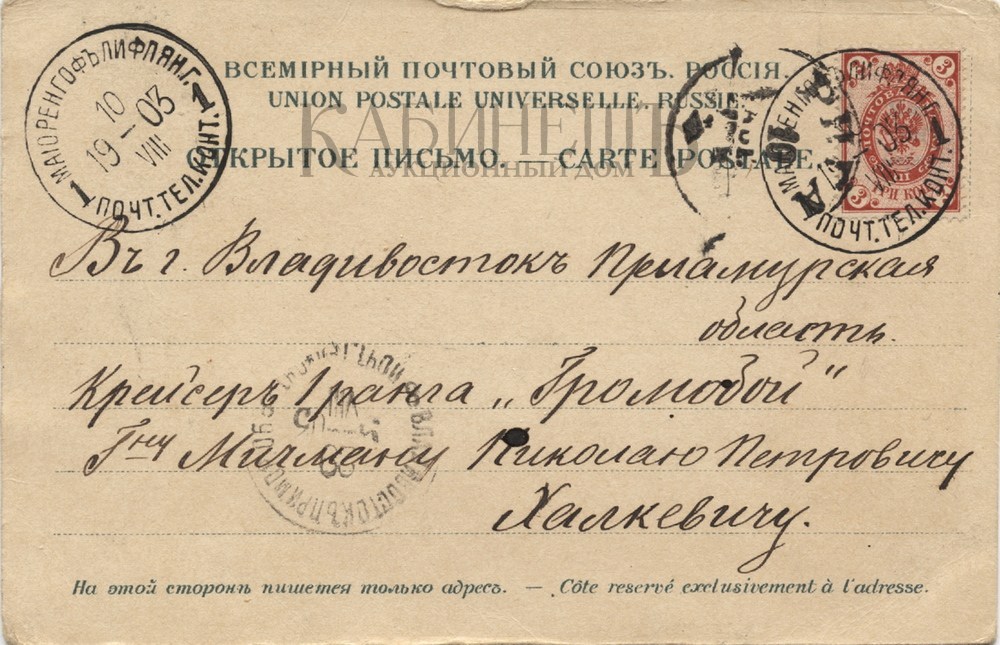 ВСЕМІРНЫЙ ПОЧТОВЫЙ СОЮЗЪ. РОССІЯ.
UNION POSTALE UNIVERSELLE. RUSSIE.
ОТКРЫТОЕ ПИСЬМО. — CARTE POSTALE.
КАБИНЕТЪ
АУКЦИОННЫЙ ДОМ
МАІОРЕНГОФЪ ЛИФЛЯН.Г.
10
19 – 03
VIII
1 ПОЧТ.ТЕЛ.КОНТ. 1
ПОЧТ.ТЕЛ.КОНТ. 1
3 3
Въ г. Владивостокъ Приамурская
область.
Крейсеръ I ранга „Громобой"
Гну Мичману Николаю Петровичу
Халкевичу.
ВЛАДИВОСТОКЪ ПРИМОР. ОБ.
На этой сторонѣ пишется только адресъ. — Côte reservé exclusivement à l'adresse.